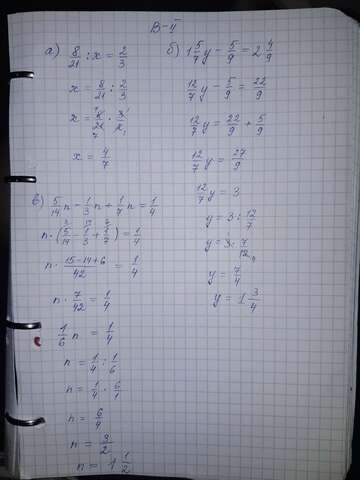 В-II
а) 8/21 : x = 2/3
x = 8/21 : 2/3
x = 8/21 · 3/2
x = 4/7
б) 1 5/7 y - 5/9 = 2 4/9
12/7 y - 5/9 = 22/9
12/7 y = 22/9 + 5/9
12/7 y = 27/9
12/7 y = 3
y = 3 : 12/7
y = 3 · 7/12
y = 7/4
y = 1 3/4
в) 5/14 n - 1/3 n + 1/7 n = 1/4
n · (5/14 - 1/3 + 1/7) = 1/4
n · (15-14+6)/42 = 1/4
n · 7/42 = 1/4
1/6 n = 1/4
n = 1/4 : 1/6
n = 1/4 · 6/1
n = 6/4
n = 3/2
n = 1 1/2